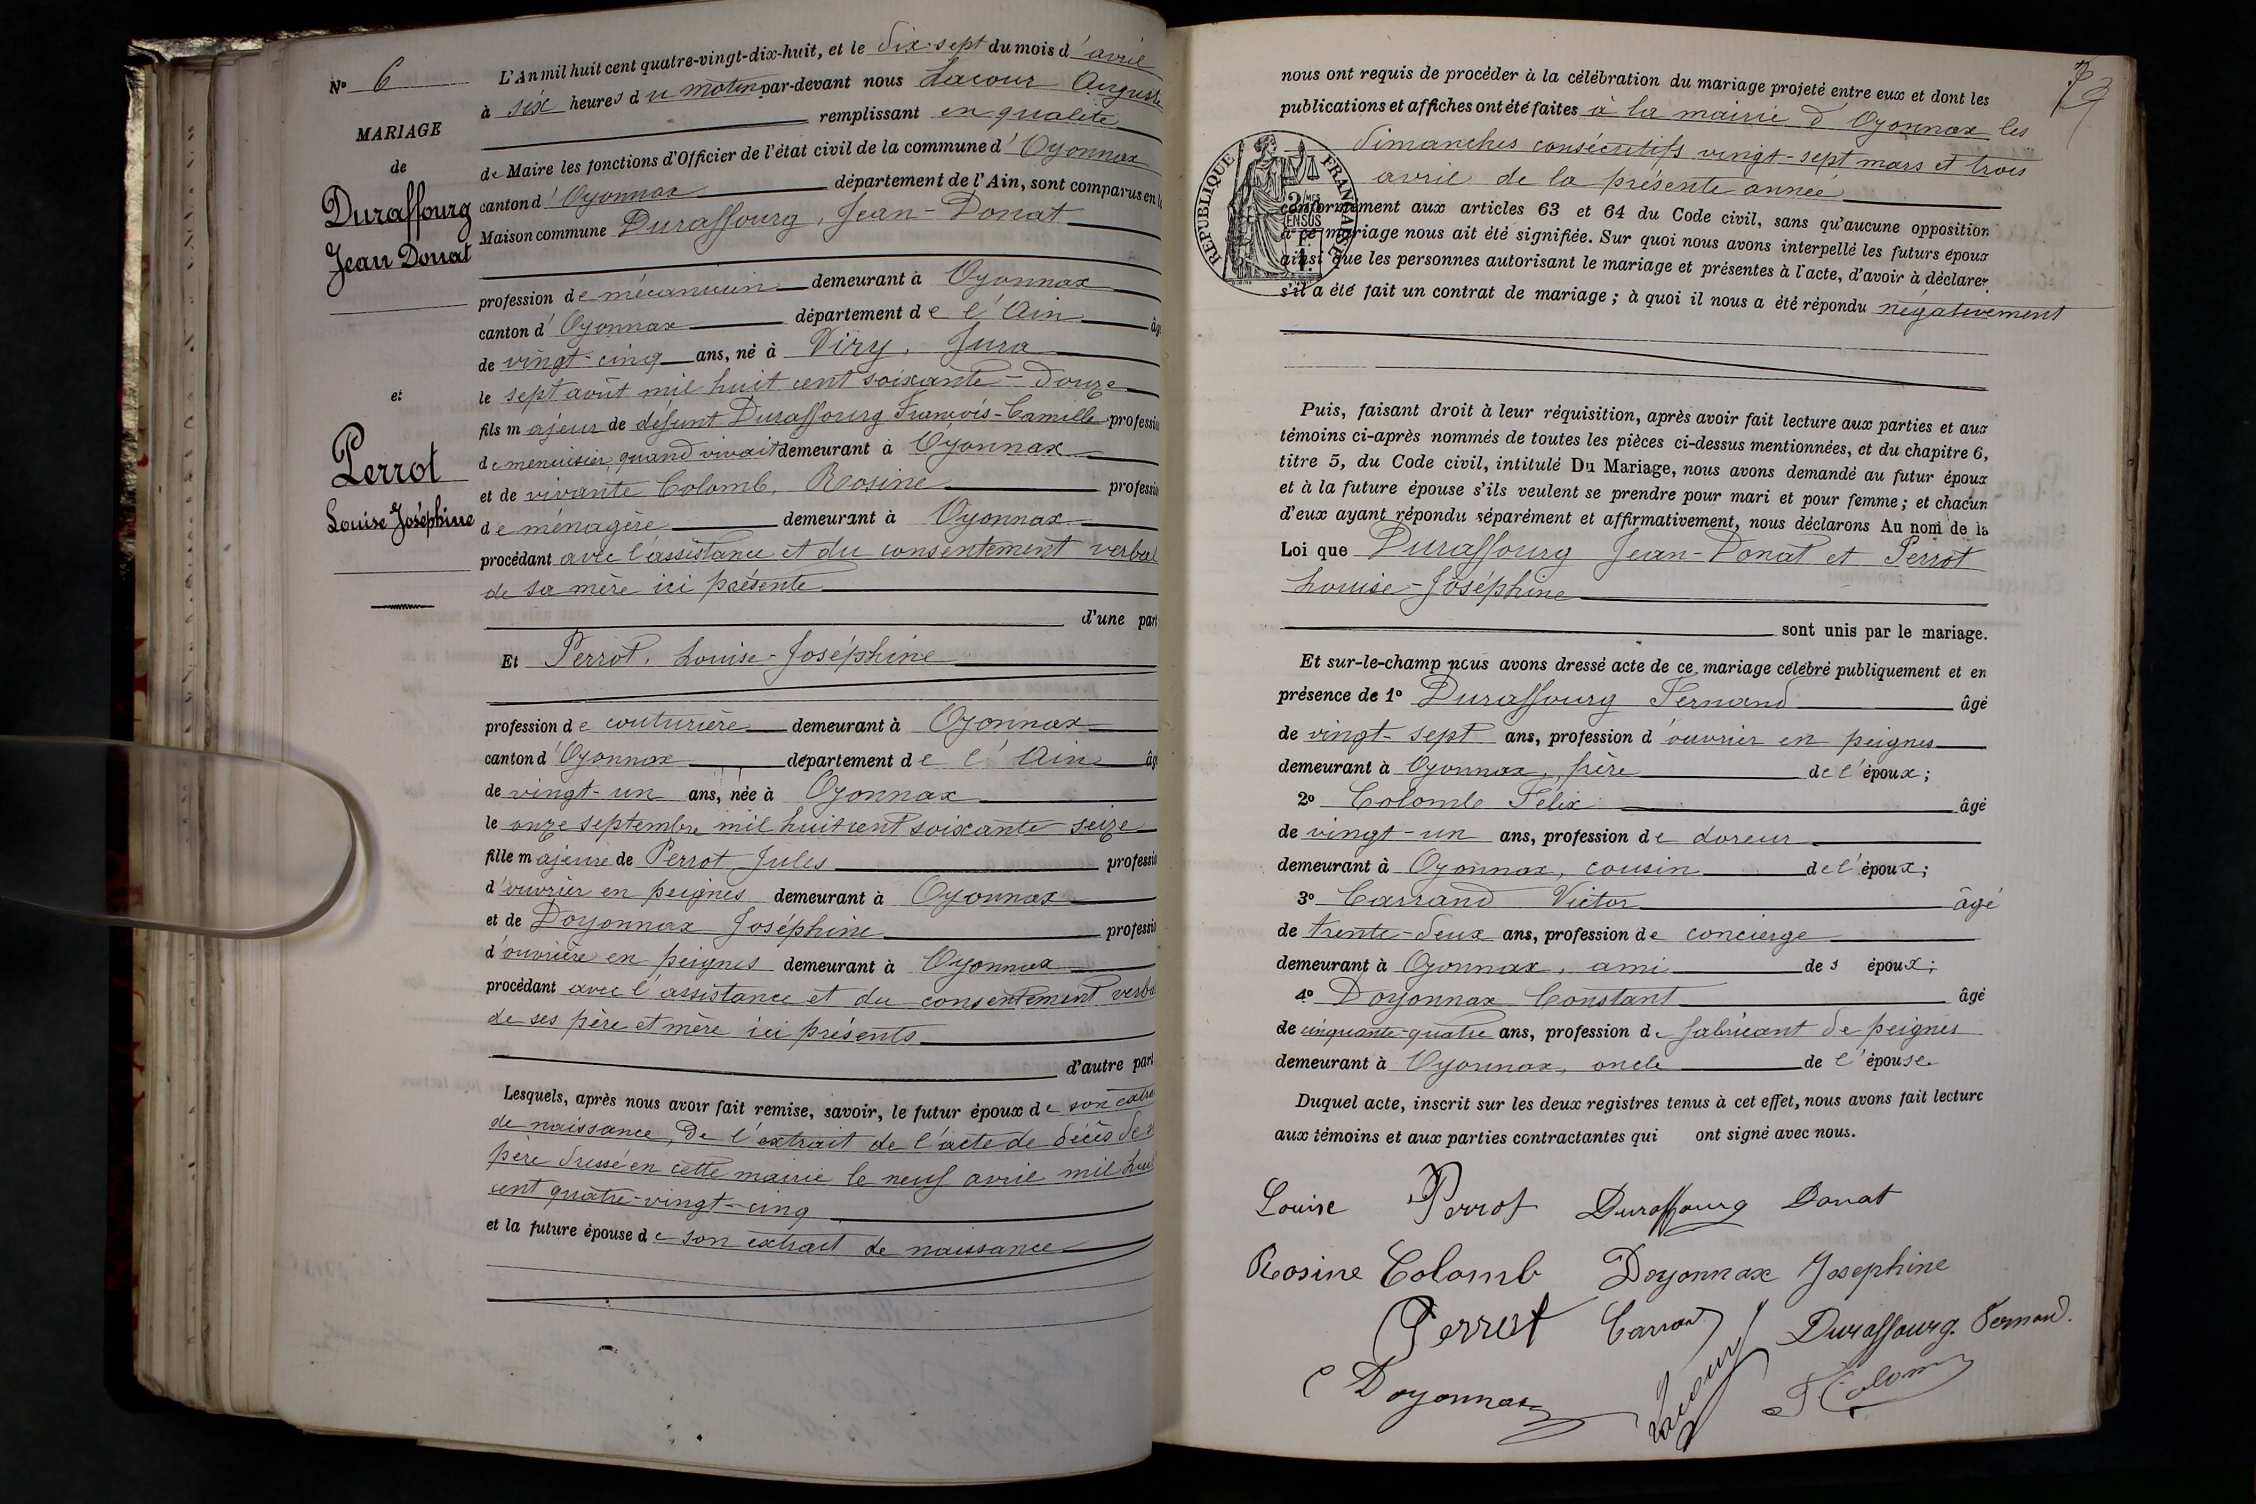 N° 6
MARIAGE
de
Duraffourg
Jean Donat
et
Perrot
Louise Joséphine
L'An mil huit cent quatre-vingt-dix-huit, et le dix-sept du mois d'avril
à six heures du matin par-devant nous Lacour Auguste
remplissant en qualité
de Maire les fonctions d'Officier de l'état civil de la commune d'Oyonnax
canton d'Oyonnax département de l'Ain, sont comparus en la
Maison commune Duraffourg, Jean-Donat
profession de mécanicien demeurant à Oyonnax
canton d'Oyonnax département de l'Ain âg
de vingt-cinq ans, né à Viry, Jura
le sept août mil huit cent soixante-douze
fils majeur de défunt Duraffourg François-Camille professio
de menuisier quand vivait demeurant à Oyonnax
et de vivante Colomb, Rosine professio
de ménagère demeurant à Oyonnax
procédant avec l'assistance et du consentement verbal
de sa mère ici présente
d'une part
Et Perrot, Louise-Joséphine
profession de couturière demeurant à Oyonnax
canton d'Oyonnax département de l'Ain âg
de vingt-un ans, née à Oyonnax
le onze septembre mil huit cent soixante-seize
fille majeure de Perrot Jules professio
d'ouvrier en peignes demeurant à Oyonnax
et de Doyonnax Joséphine professio
d'ouvrière en peignes demeurant à Oyonnax
procédant avec l'assistance et du consentement verba
de ses père et mère ici présents
d'autre part
Lesquels, après nous avoir fait remise, savoir, le futur époux de son
de naissance, de l'extrait de l'acte de décès de
père dressé en cette mairie le neuf avril mil huit
cent quatre-vingt-cinq
et la future épouse de son extrait de naissance
nous ont requis de procéder à la célébration du mariage projeté entre eux et dont les
publications et affiches ont été faites à la mairie d'Oyonnax les
dimanches consécutifs vingt-sept mars et trois
avril de la présente année
RÉPUBLIQUE FRANÇAISE
conformément aux articles 63 et 64 du Code civil, sans qu'aucune opposition
à ce mariage nous ait été signifiée. Sur quoi nous avons interpellé les futurs époux
ainsi que les personnes autorisant le mariage et présentes à l'acte, d'avoir à déclarer
s'il a été fait un contrat de mariage ; à quoi il nous a été répondu négativement
Puis, faisant droit à leur réquisition, après avoir fait lecture aux parties et aux
témoins ci-après nommés de toutes les pièces ci-dessus mentionnées, et du chapitre 6,
titre 5, du Code civil, intitulé Du Mariage, nous avons demandé au futur époux
et à la future épouse s'ils veulent se prendre pour mari et pour femme ; et chacun
d'eux ayant répondu séparément et affirmativement, nous déclarons Au nom de la
Loi que Duraffourg Jean-Donat et Perrot
Louise-Joséphine
sont unis par le mariage.
Et sur-le-champ nous avons dressé acte de ce mariage célébré publiquement et en
présence de 1° Duraffourg Fernand âgé
de vingt-sept ans, profession d'ouvrier en peignes
demeurant à Oyonnax, frère de l'époux ;
2° Colomb Félix âgé
de vingt-un ans, profession de doreur
demeurant à Oyonnax, cousin de l'époux ;
3° Carrand Victor âgé
de trente-deux ans, profession de concierge
demeurant à Oyonnax, ami des époux ;
4° Doyonnax Constant âgé
de cinquante-quatre ans, profession de fabricant de peignes
demeurant à Oyonnax, oncle de l'épouse
Duquel acte, inscrit sur les deux registres tenus à cet effet, nous avons fait lecture
aux témoins et aux parties contractantes qui ont signé avec nous.
Louise Perrot Duraffourg Donat
Rosine Colomb Doyonnax Josephine
Perrot Carrand Duraffourg Fernand.
Doyonnax Lacour F Colomb